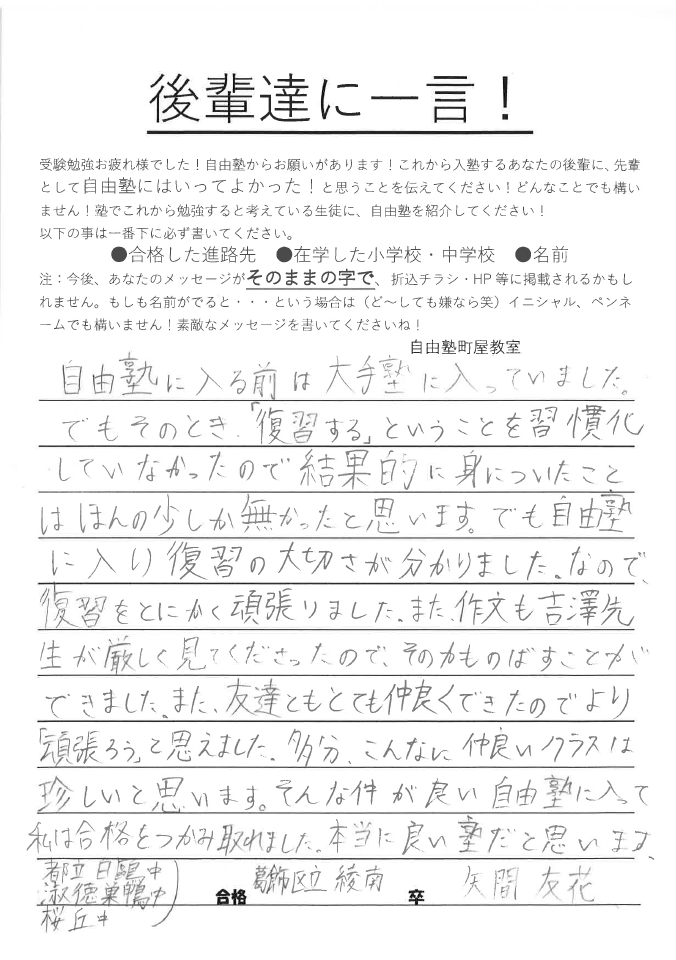 後輩達に一言！
受験勉強お疲れ様でした！自由塾からお願いがあります！これから入塾するあなたの後輩に、先輩
として自由塾にはいってよかった！と思うことを伝えてください！どんなことでも構い
ません！塾でこれから勉強すると考えている生徒に、自由塾を紹介してください！
以下の事は一番下に必ず書いてください。
●合格した進路先　●在学した小学校・中学校　●名前
注：今後、あなたのメッセージがそのままの字で、折込チラシ・HP等に掲載されるかもし
れません。もしも名前がでると・・・という場合は（ど～しても嫌なら笑）イニシャル、ペンネ
ームでも構いません！素敵なメッセージを書いてくださいね！
自由塾町屋教室
自由塾に入る前は大手塾に入っていました。
でもそのとき、「復習する」ということを習慣化
していなかったので結果的に身についたこと
はほんの少ししか無かったと思います。でも自由塾
に入り復習の大切さが分かりました。なので、
復習をとにかく頑張りました。また、作文も吉澤先
生が厳しく見てくださったので、その力ものばすことが
できました。また、友達ともとても仲良くできたのでより
「頑張ろう」と思えました。多分、こんなに仲良いクラスは
珍しいと思います。そんな仲が良い自由塾に入って
私は合格をつかみ取れました。本当に良い塾だと思います。
都立白鷗中
淑徳巣鴨中
桜丘中
合格 葛飾区立 綾南 卒 矢間 友花